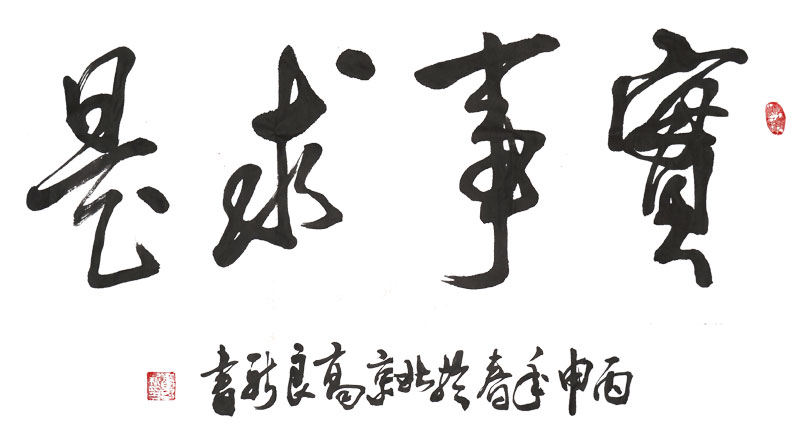 實事求是
丙申年春於北京高良書